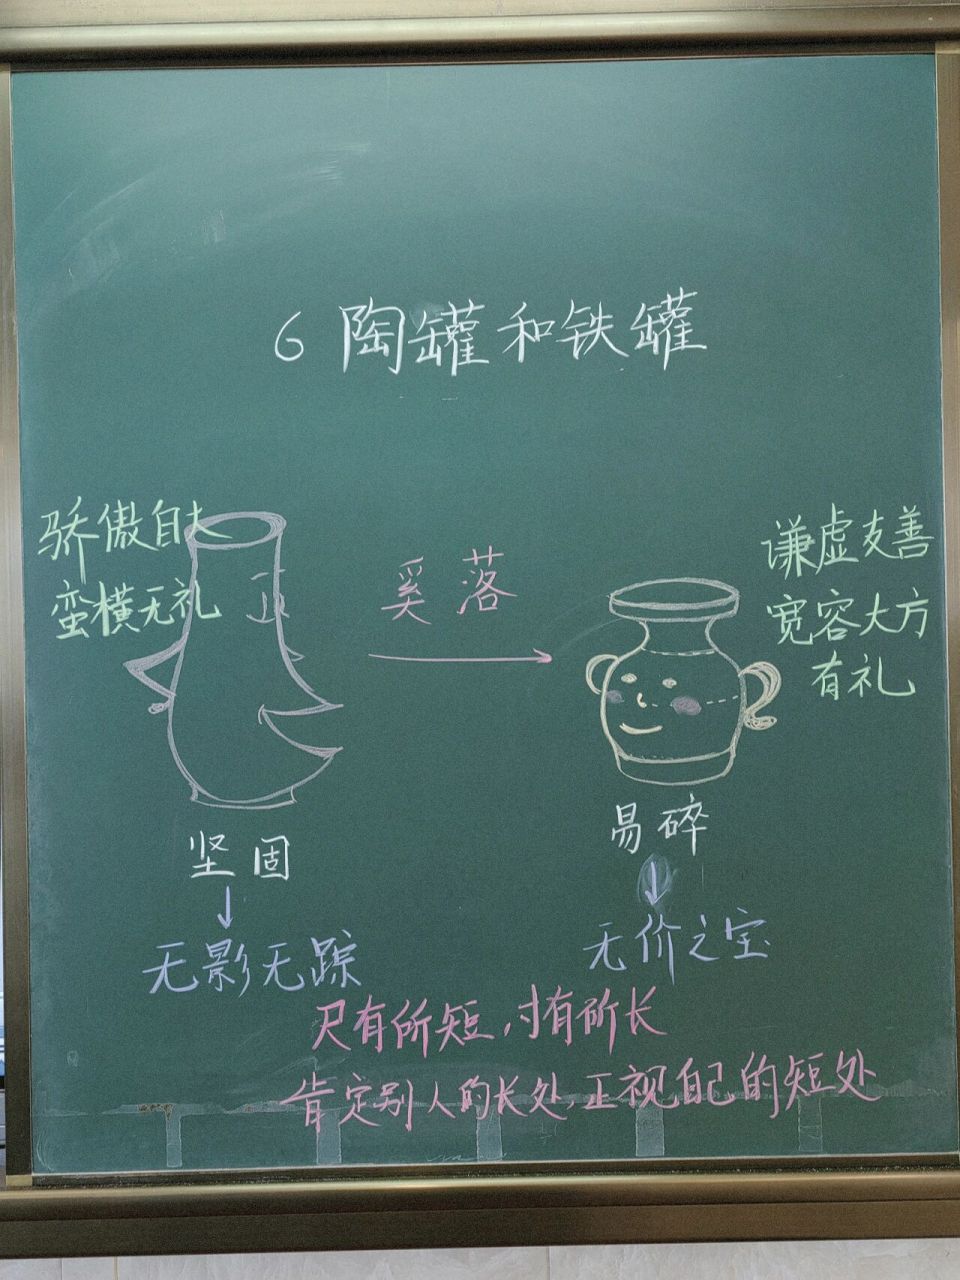 6 陶罐和铁罐
骄傲自大
蛮横无礼
奚落
谦虚友善
宽容大方
有礼
坚固
易碎
无影无踪
无价之宝
尺有所短，寸有所长
肯定别人的长处，正视自己的短处